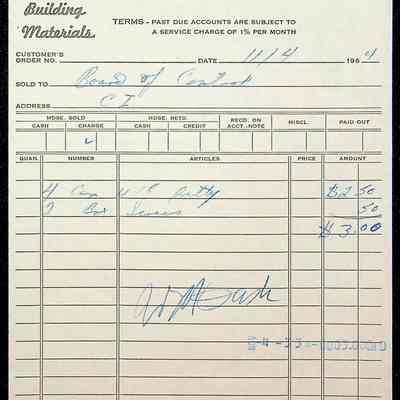 Building
Materials
TERMS - PAST DUE ACCOUNTS ARE SUBJECT TO
A SERVICE CHARGE OF 1% PER MONTH
CUSTOMER'S
ORDER NO. DATE 11/4 1964
SOLD TO Board of Control
ADDRESS C I
MDSE. SOLD MDSE. RETD. RECD. ON ACCT.-NOTE MISCL. PAID OUT
CASH CHARGE CASH CREDIT
QUAN. NUMBER ARTICLES PRICE AMOUNT
4 Can putty $2 50
2 Box 50
$ 3.00